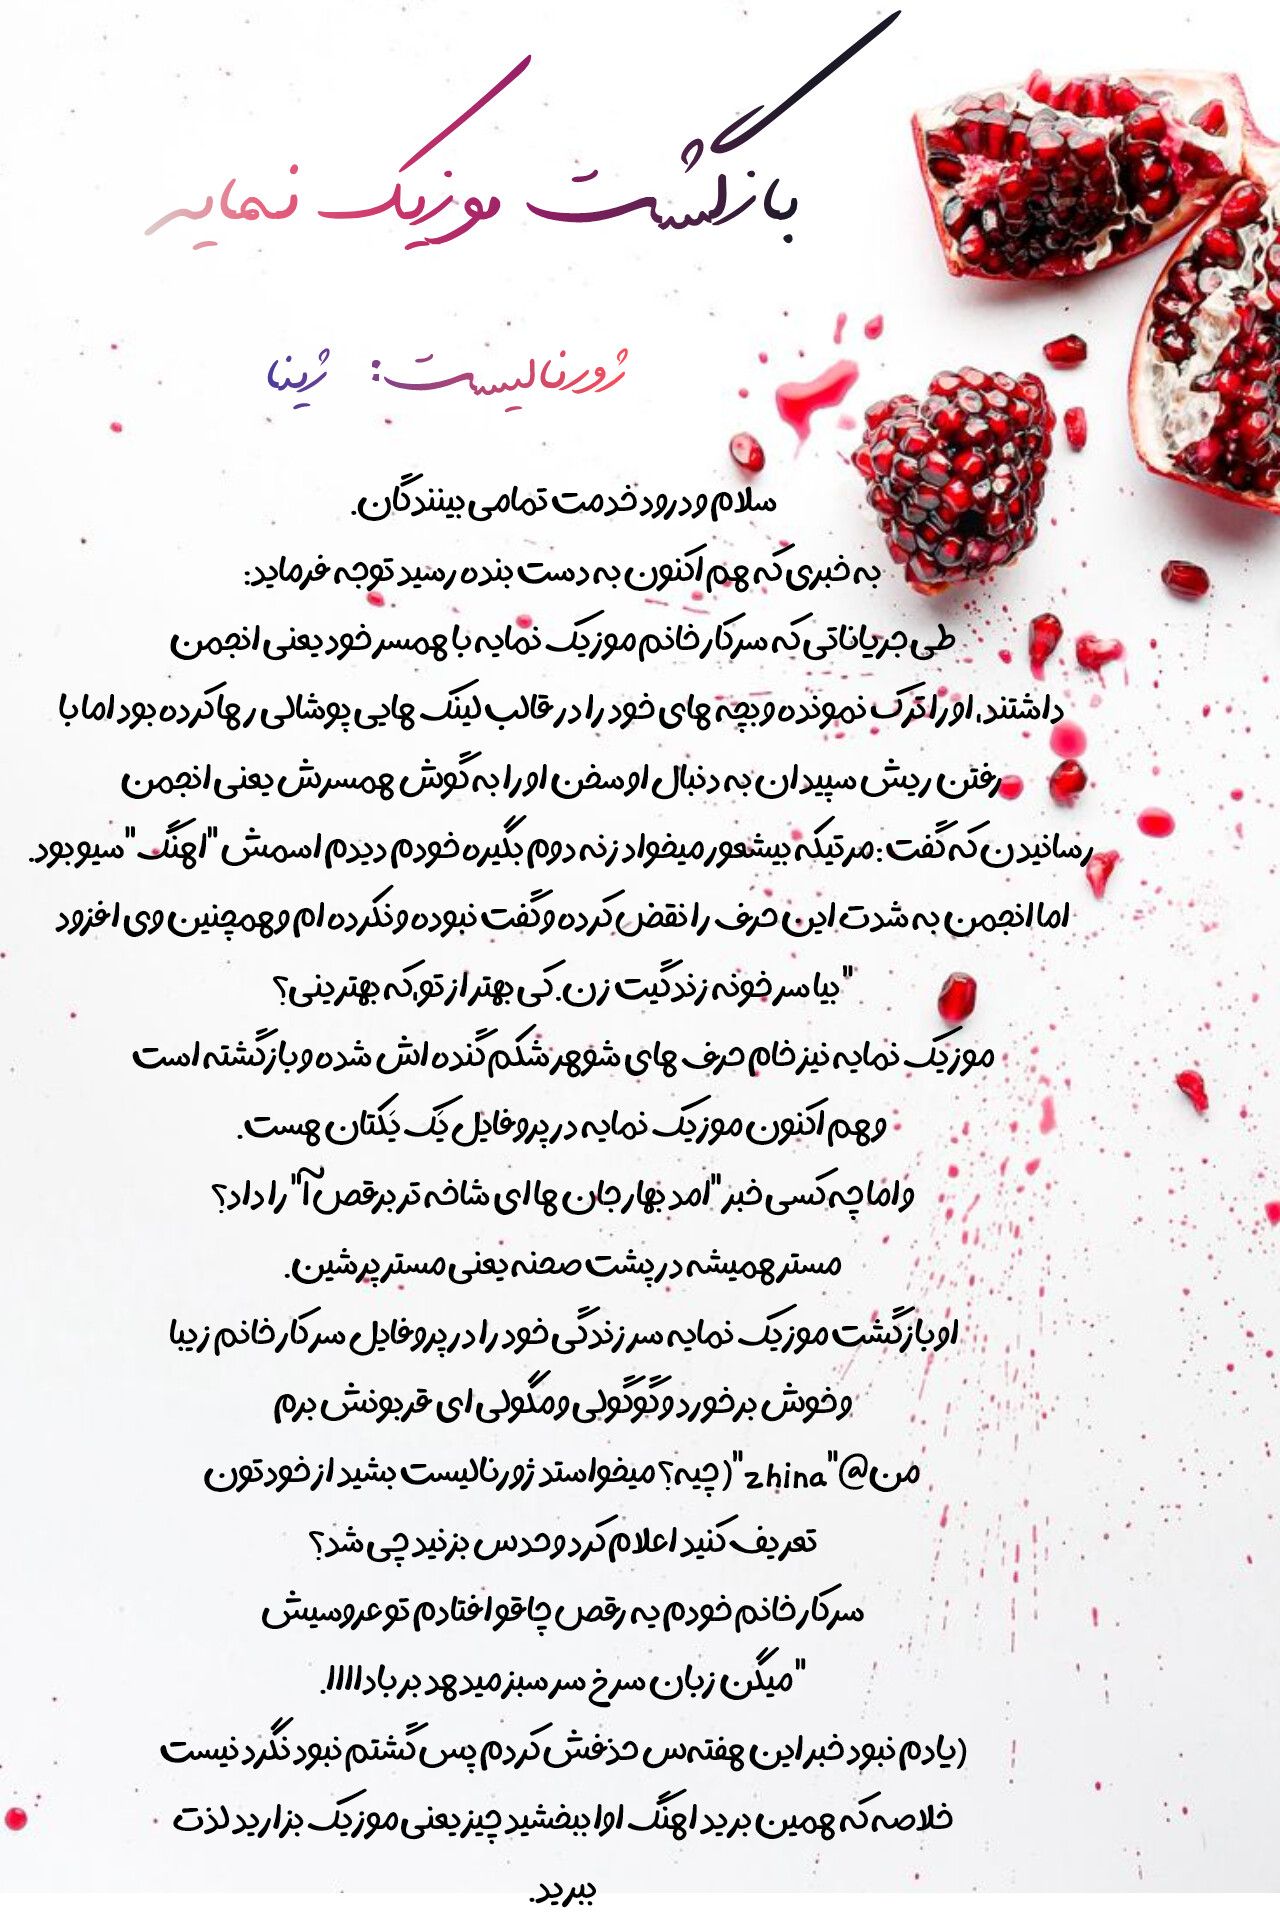 بازگشت موزیک نمایه
ژورنالیست: ژینا
سلام و درود خدمت تمامی بینندگان.
به خبری که هم اکنون به دست بنده رسید توجه فرماید:
طی جریاناتی که سرکار خانم موزیک نمایه با همسر خود یعنی انجمن
داشتند، او را ترک نمونده و بچه های خود را در قالب لینک هایی پوشالی رها کرده بود اما با
رفتن ریش سپیدان به دنبال او سخن او را به گوش همسرش یعنی انجمن
رسانیدن که گفت: مرتیکه بیشعور میخواد زنه دوم بگیره خودم دیدم اسمش "اهنگ" سیو بود.
اما انجمن به شدت این حرف را نقض کرده و گفت نبوده و نکرده ام و همچنین وی افزود
"بیا سر خونه زندگیت زن. کی بهتر از تو، که بهترینی؟
موزیک نمایه نیز خام حرف های شوهر شکم گنده اش شده و بازگشته است
و هم اکنون موزیک نمایه در پروفایل یَک یَکتان هست.
و اما چه کسی خبر "امد بهار جان ها ای شاخه تر برقص آ" را داد؟
مستر همیشه در پشت صحنه یعنی مستر پرشین.
او بازگشت موزیک نمایه سر زندگی خود را در پروفایل سرکار خانم زیبا
و خوش برخورد و گوگولی و مگولی ای قربونش برم
من@"zhina"( چیه؟ میخواستد ژورنالیست بشید از خودتون
تعریف کنید اعلام کرد و حدس بزنید چی شد؟
سرکار خانم خودم یه رقص چاقو افتادم تو عروسیش
"میگن زبان سرخ سر سبز میدهد بر باداااااا.
(یادم نبود خبر این هفته‌س حذفش کردم پس گشتم نبود نگرد نیست
خلاصه که همین برید اهنگ اوا ببخشید چیز یعنی موزیک بزارید لذت
ببرید.